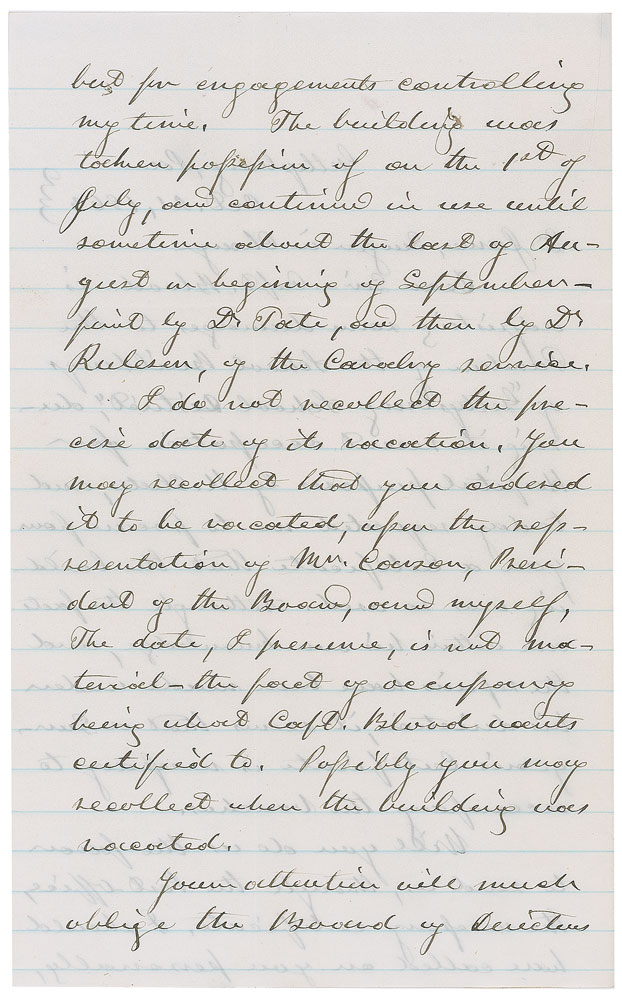 but for engagements controlling
my time. The building was
taken possession of on the 1st of
July, and continued in use until
sometime about the last of Au-
gust or beginning of September—
first by Dr Tate, and then by Dr
Rulison, of the Cavalry service.
I do not recollect the pre-
cise date of its vacation. You
may recollect that you ordered
it to be vacated, upon the rep-
resentation of Mr. Carson, Presi-
dent of the Board, and myself.
The date, I presume, is not ma-
terial—the fact of occupancy
being what Capt. Blood wants
certified to. Possibly you may
recollect when the building was
vacated.
Your attention will much
oblige the Board of Directors